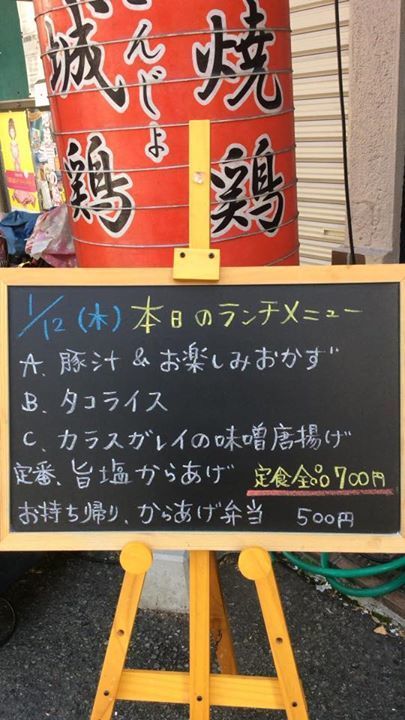 城鶏
さんじょ
焼鶏
1/12 (木) 本日のランチメニュー
A. 豚汁 & お楽しみおかず
B. タコライス
C. カラスガレイの味噌唐揚げ
定番、旨塩からあげ 定食全品700円
お持ち帰り、からあげ弁当 500円